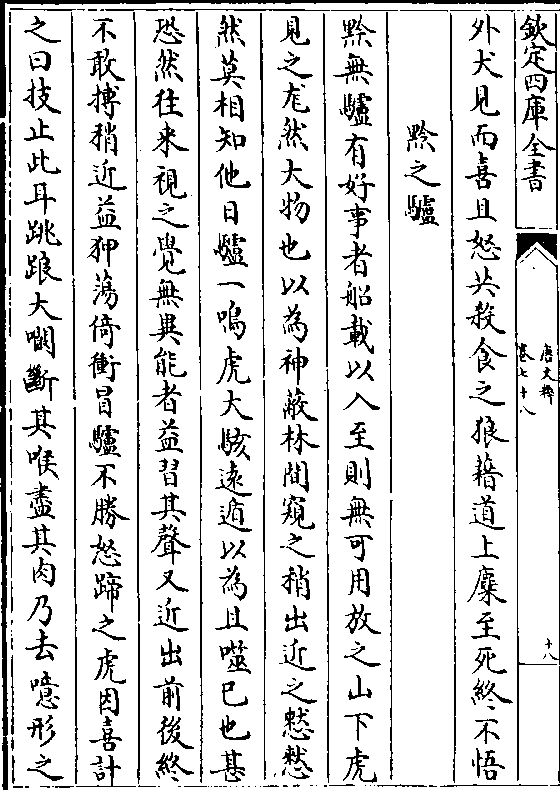 欽定四庫全書
唐文粹
卷七十八
十八
外犬見而喜且怒共殺食之狼藉道上麋至死終不悟
黔之驢
黔無驢有好事者船載以入至則無可用放之山下虎
見之尨然大物也以為神蔽林間窺之稍出近之憖憖
然莫相知他日驢一鳴虎大駭遠遁以為且噬已也甚
恐然往来視之覺無異能者益習其聲又近出前後終
不敢搏稍近益狎蕩倚衝冒驢不勝怒蹄之虎因喜計
之曰技止此耳跳踉大㘚斷其喉盡其肉乃去噫形之